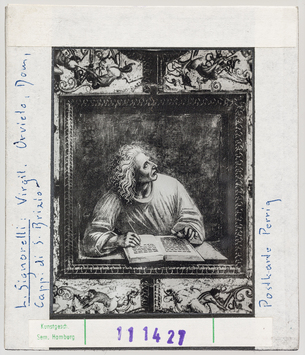 L. Signorelli: Virgil. Orvieto, Dom,
Capp. di S. Brizio
Postkarte Perrig
Kunstgesch.
Sem. Hamburg
111427